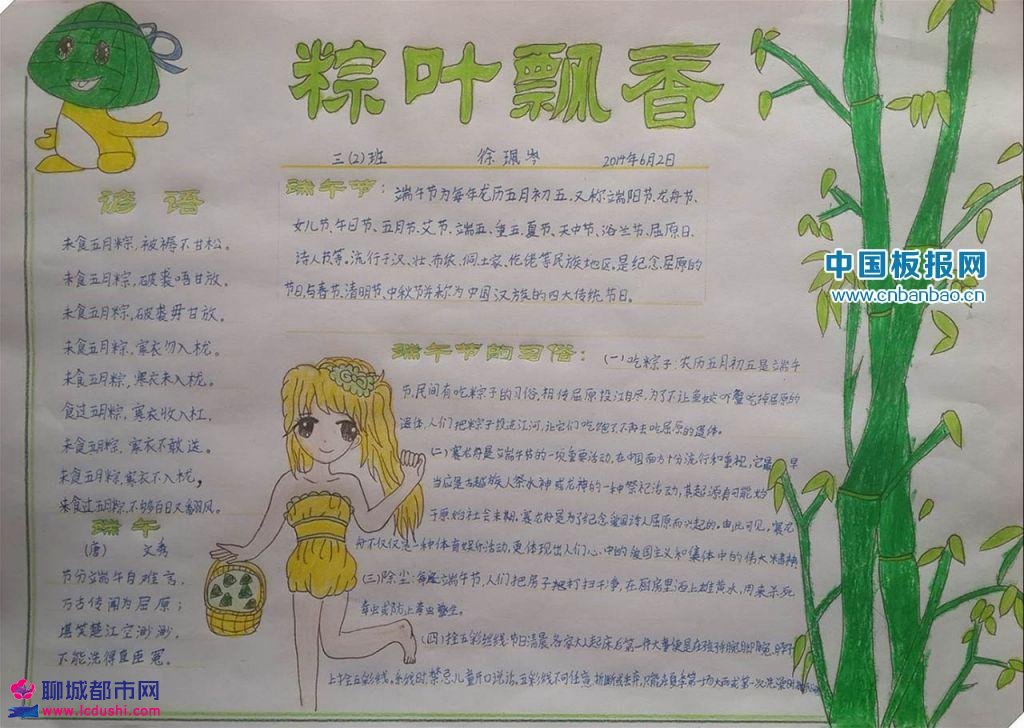 粽叶飘香
三(2)班 徐珮岑 2014年6月2日
谚语
未食五月粽，被褥不甘松。
未食五月粽，破裘唔甘放。
未食五月粽，破裘毋甘放。
未食五月粽，寒衣勿入栊。
未食五月粽，寒衣未入栊。
食过五月粽，寒衣收入杠，
未食五月粽，寒衣不敢送。
未食五月粽，寒衣不入栊，
未食过五月粽，不够百日又番风。
端午
(唐) 文秀
节分端午自难言，
万古传闻为屈原；
堪笑楚江空渺渺，
不能洗得直臣冤。
端午节：端午节为每年农历五月初五，又称端阳节、龙舟节、
女儿节、午日节、五月节、艾节、端五、重五、夏节、天中节、浴兰节、屈原日、
诗人节等。流行于汉、壮、布依、侗、土家、仡佬等民族地区。是纪念屈原的
节日，与春节、清明节、中秋节并称为中国汉族的四大传统节日。
端午节的习俗：(一)吃粽子：农历五月初五是端午
节，民间有吃粽子的习俗，相传屈原投江自尽，为了不让鱼蛟虾蟹吃掉屈原的
遗体，人们把粽子投进江河，让它们吃饱了不再去吃屈原的遗体。
(二)赛龙舟是端午节的一项重要活动，在中国南方十分流行和重视，它最早
当应是古越族人祭水神或龙神的一种祭祀活动，其起源有可能始
于原始社会末期。赛龙舟是为了纪念爱国诗人屈原而兴起的。由此可见，赛龙
舟不仅仅是一种体育娱乐活动，更体现出人们心中的爱国主义和集体中的伟大米精神
(三)除尘：每逢端午节，人们把房子打扫干净，在厨房里洒上雄黄水，用来杀死
毒虫或防止毒虫孳生。
(四)拴五彩丝线：节日清晨，各家大人起床后第一件大事便是在孩子
上拴五彩线。系线时，禁忌儿童开口说话，五彩线不可任意折断或丢弃，只能在夏季第一场大雨或第一次洗澡时
中国板报网
www.cnbanbao.cn
聊城都市网
www.lcdushi.com